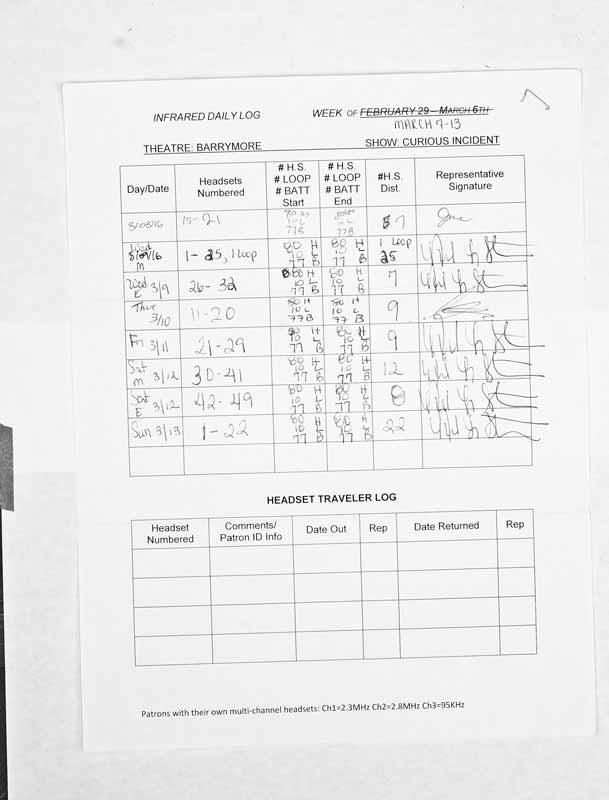 INFRARED DAILY LOG WEEK OF FEBRUARY 29 – MARCH 6TH
MARCH 7-13
THEATRE: BARRYMORE SHOW: CURIOUS INCIDENT
Day/Date Headsets Numbered # H.S. # LOOP # BATT Start # H.S. # LOOP # BATT End #H.S. Dist. Representative Signature
3/08/16 15-21 80 HS 10 L 77 B 80 HS 10 L 77 B 7
Wed 3/09/16 M 1-25, 1 Loop 80 H 10 L 77 B 80 H 10 L 77 B 1 Loop 25
Wed E 3/9 26-32 80 H 10 L 77 B 80 H 10 L 77 B 7
Thur 3/10 11-20 80 H 10 L 77 B 80 H 10 L 77 B 9
Fri 3/11 21-29 80 H 10 L 77 B 80 H 10 L 77 B 9
Sat M 3/12 30-41 80 H 10 L 77 B 80 H 10 L 77 B 12
Sat E 3/12 42-49 80 H 10 L 77 B 80 H 10 L 77 B 8
Sun 3/13 1-22 80 H 10 L 77 B 80 H 10 L 77 B 22
HEADSET TRAVELER LOG
Headset Numbered Comments/ Patron ID Info Date Out Rep Date Returned Rep
Patrons with their own multi-channel headsets: Ch1=2.3MHz Ch2=2.8MHz Ch3=95KHz